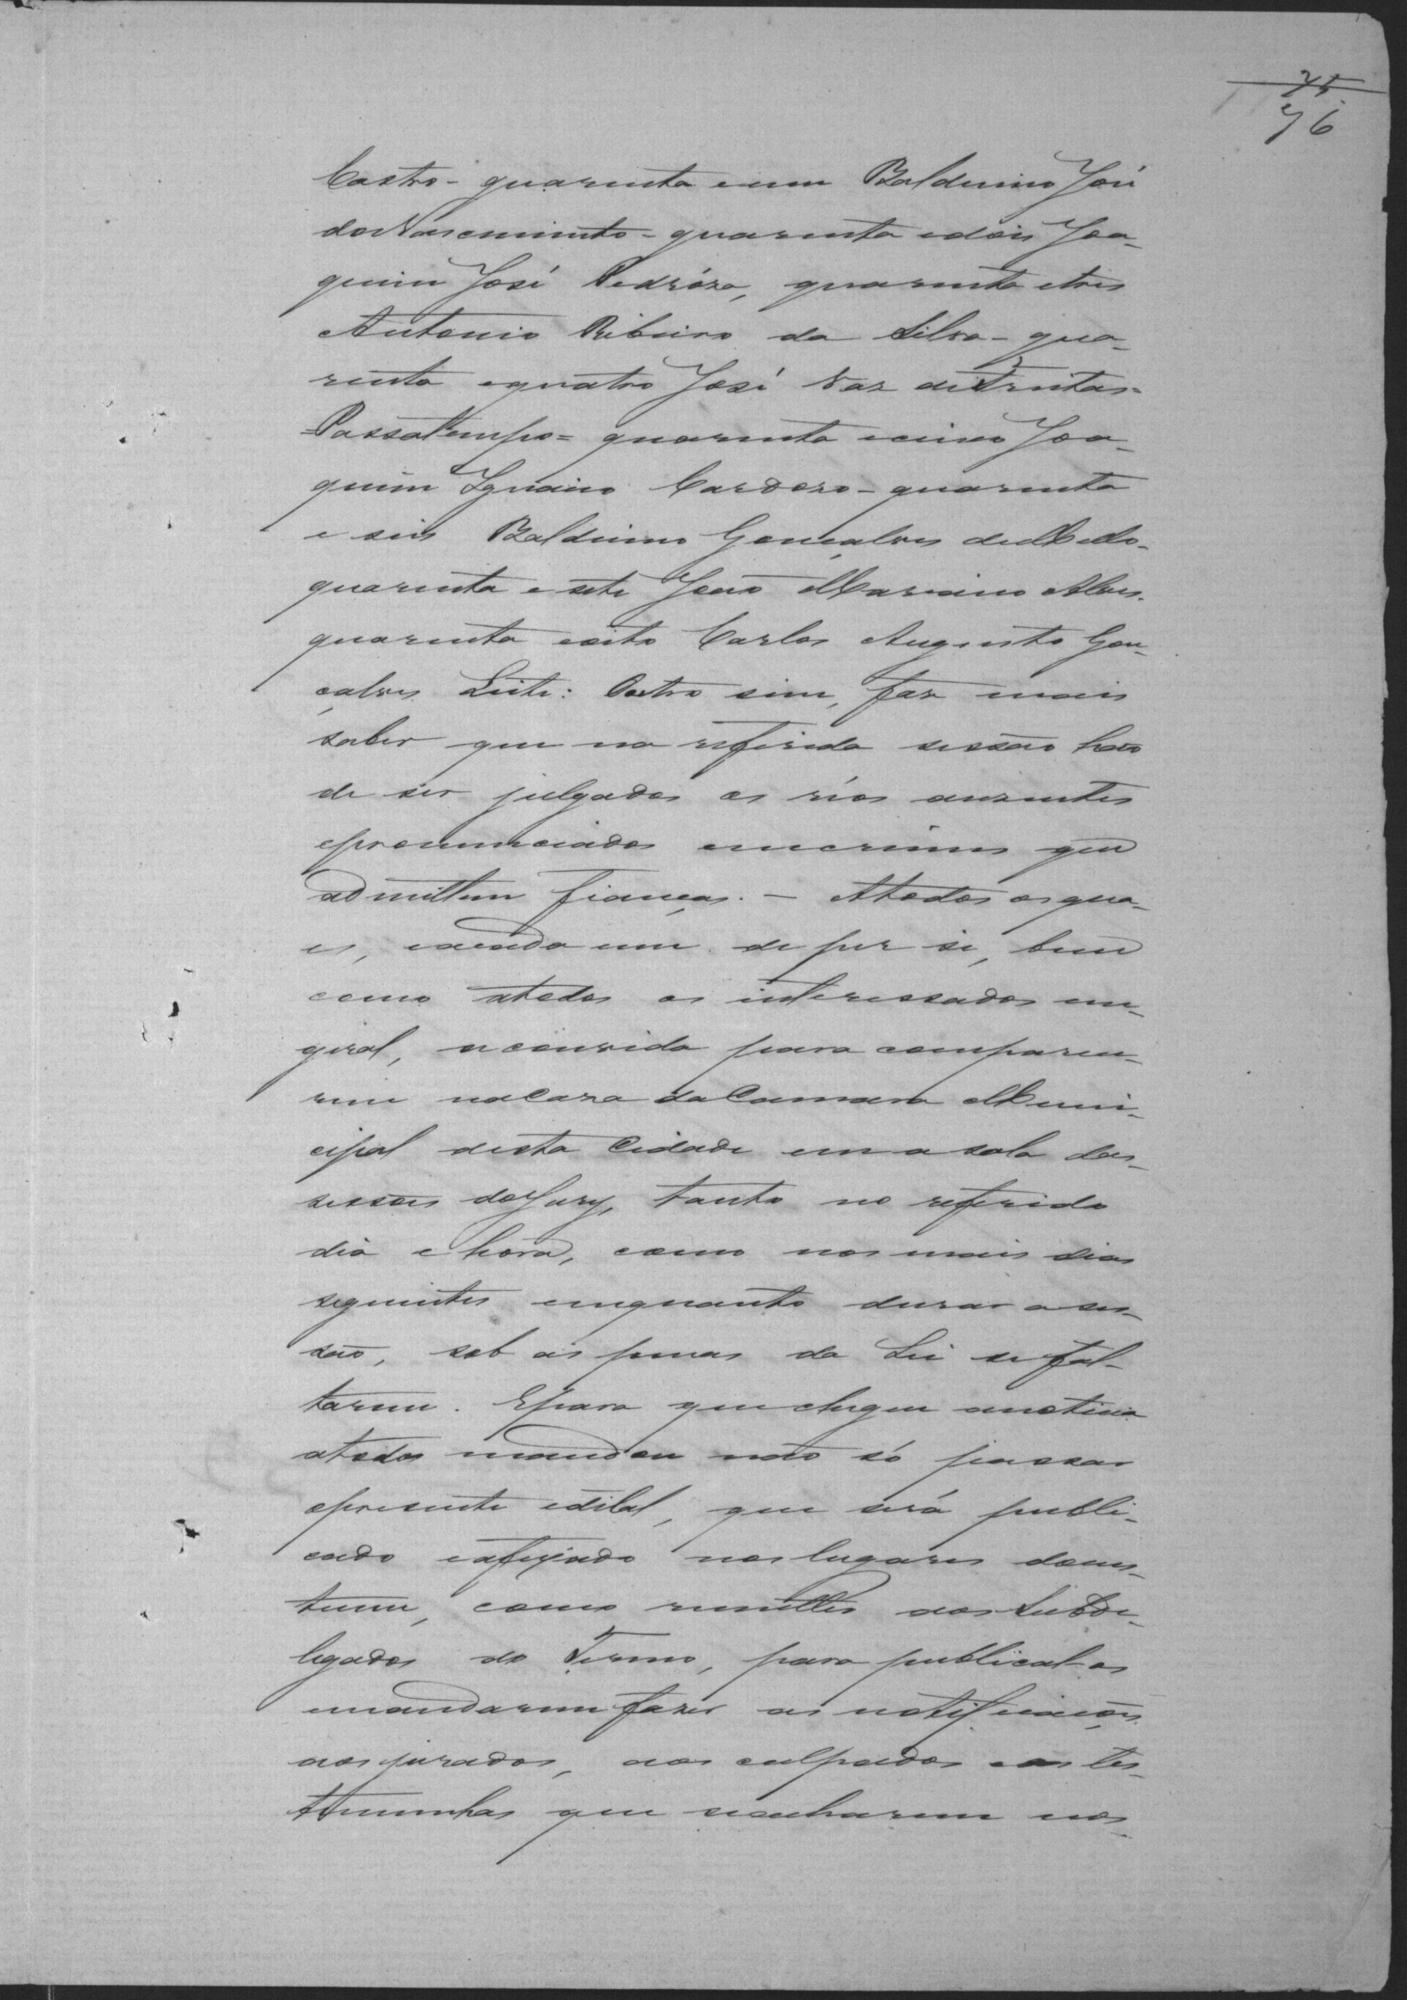 75
76
Castro - quarenta e um Balduino José
do Nascimento - quarenta e dois Joa-
quim José Pedróza, quarenta e tres
Antonio Ribeiro da Silva - qua-
renta e quatro José Vaz de Freitas =
= Passatempo = quarenta e cinco Joa-
quim Ignacio Cardozo - quarenta
e seis Balduino Gonçalves de Mello -
quarenta e sete João Mariano Alves.
quarenta e oito Carlos Augusto Gon-
çalves Leite: Outro sim, faz mais
saber que na referida sessão hão
de ser julgados os réos auzentes
e pronunciados em crimes que
admittem fianças. - A todos os qua-
es, e a cada um de per si, bem
como a todos os interessados em
geral, se convida para compare-
rem na Caza da Camara Muni-
cipal desta Cidade em a sala das
sessões do Jury, tanto no referido
dia e hora, como nos mais dias
seguintes emquanto durar a ses-
são, sob as penas da Lei se fal-
tarem. E para que chegue a noticia
a todos mandou não só passar
o presente edital, que será publi-
cado e affixado nos lugares do cus-
tume, como remetter aos Subde-
legados do Termo, para publical-os
e mandarem fazer as notificações
aos jurados, aos culpados e as tes-
temunhas que se acharem nos